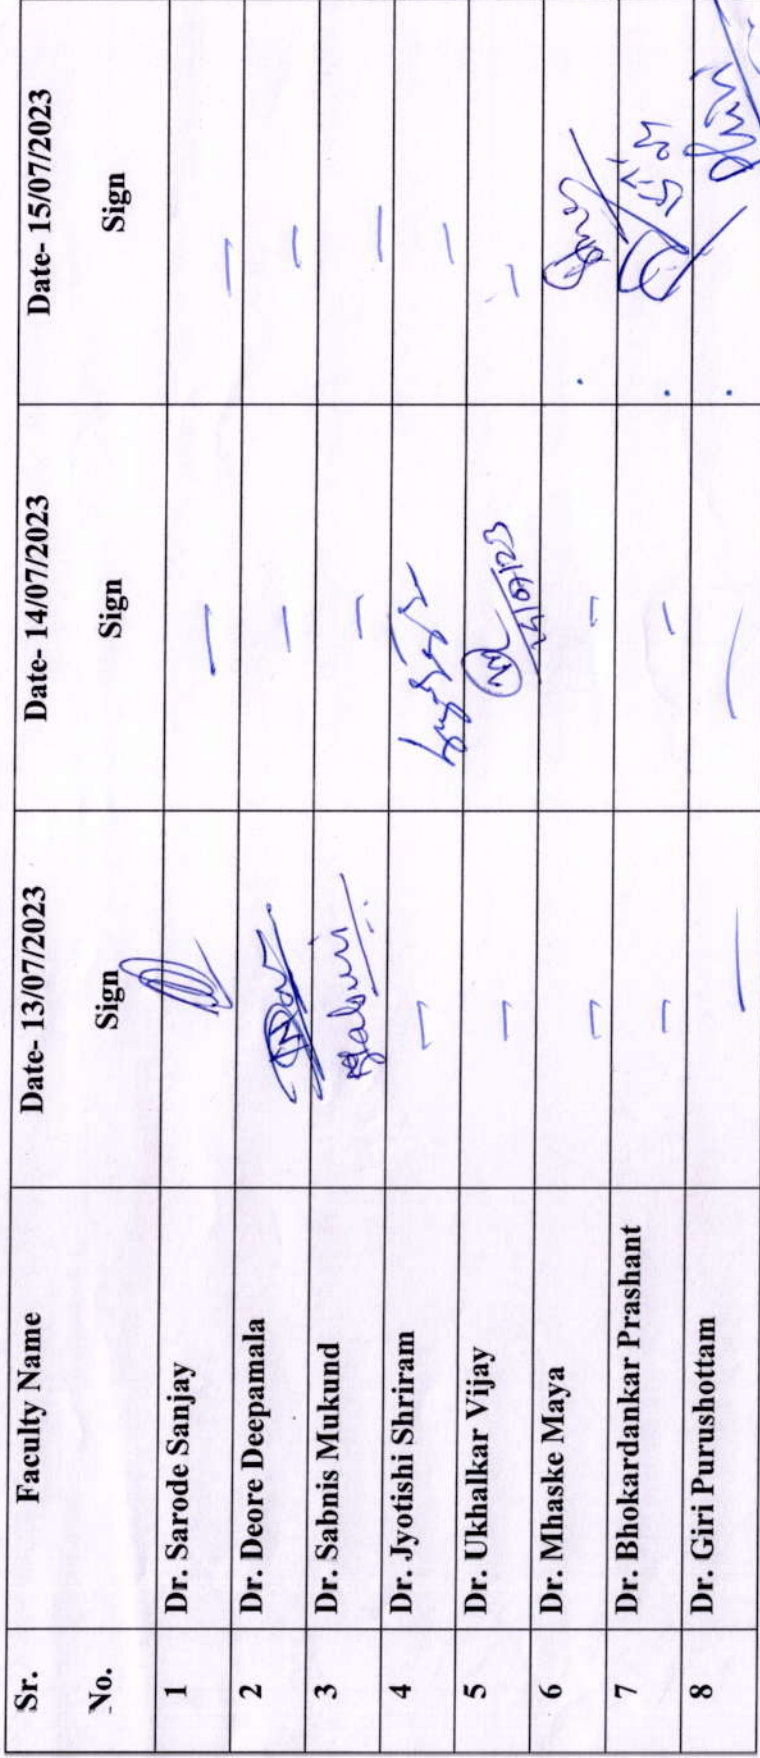 Sr. No. Faculty Name Date- 13/07/2023 Sign Date- 14/07/2023 Sign Date- 15/07/2023 Sign
1 Dr. Sarode Sanjay — —
2 Dr. Deore Deepamala — —
3 Dr. Sabnis Mukund — —
4 Dr. Jyotishi Shriram — —
5 Dr. Ukhalkar Vijay — —
6 Dr. Mhaske Maya — —
7 Dr. Bhokardankar Prashant — —
8 Dr. Giri Purushottam — —